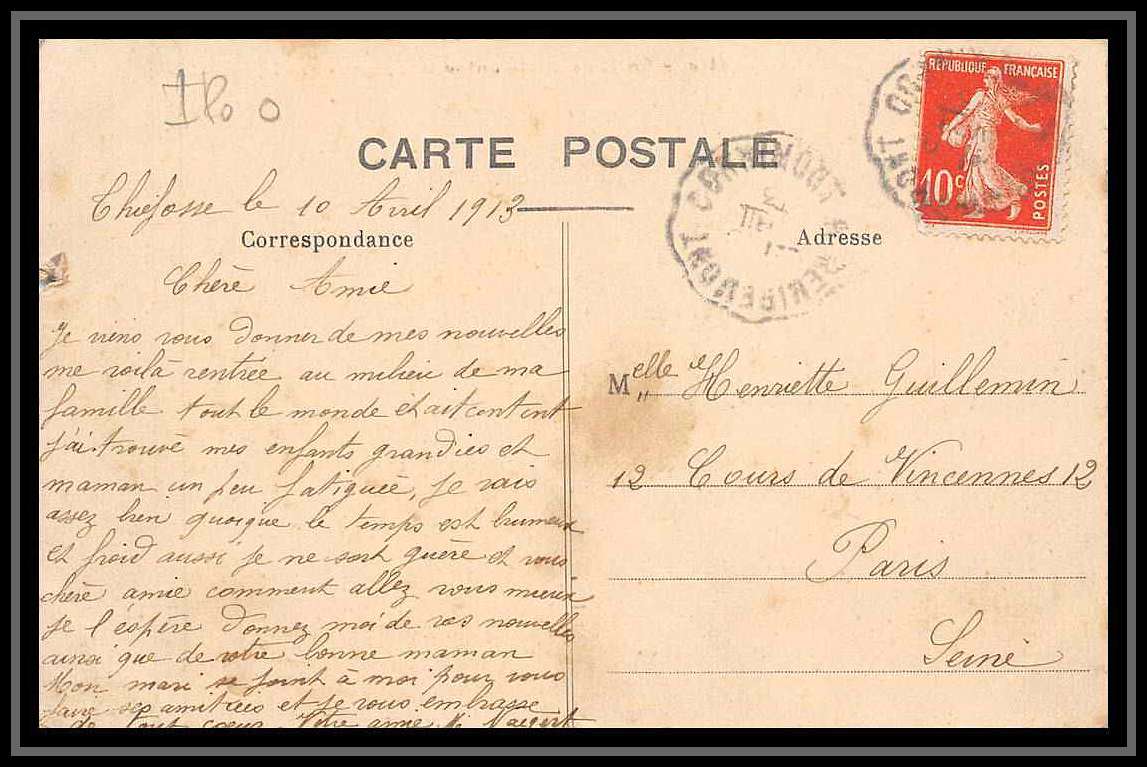 REPUBLIQUE FRANÇAISE
10c
POSTES
CARTE POSTALE
Thiéfosse le 10 Avril 1913
Correspondance
Adresse
CORNIMONT
REMIREMONT
Chère Amie
Je viens vous donner de mes nouvelles
me voilà rentrée au milieu de ma
famille tout le monde était content
j'ai trouvé mes enfants grandies et
maman un peu fatiguée, je vais
assez bien quoique le temps est humeux
et froid aussi je ne sort guère et vous
chère amie comment allez vous mieux
je l'éspère Donnez moi de vos nouvelles
ainsi que de votre bonne maman
Mon mari se joint à moi pour vous
faire ses amitiées et je vous embrasse
de tout coeur Votre amie
Melle Henriette Guillemin
12 Cours de Vincennes 12
Paris
Seine